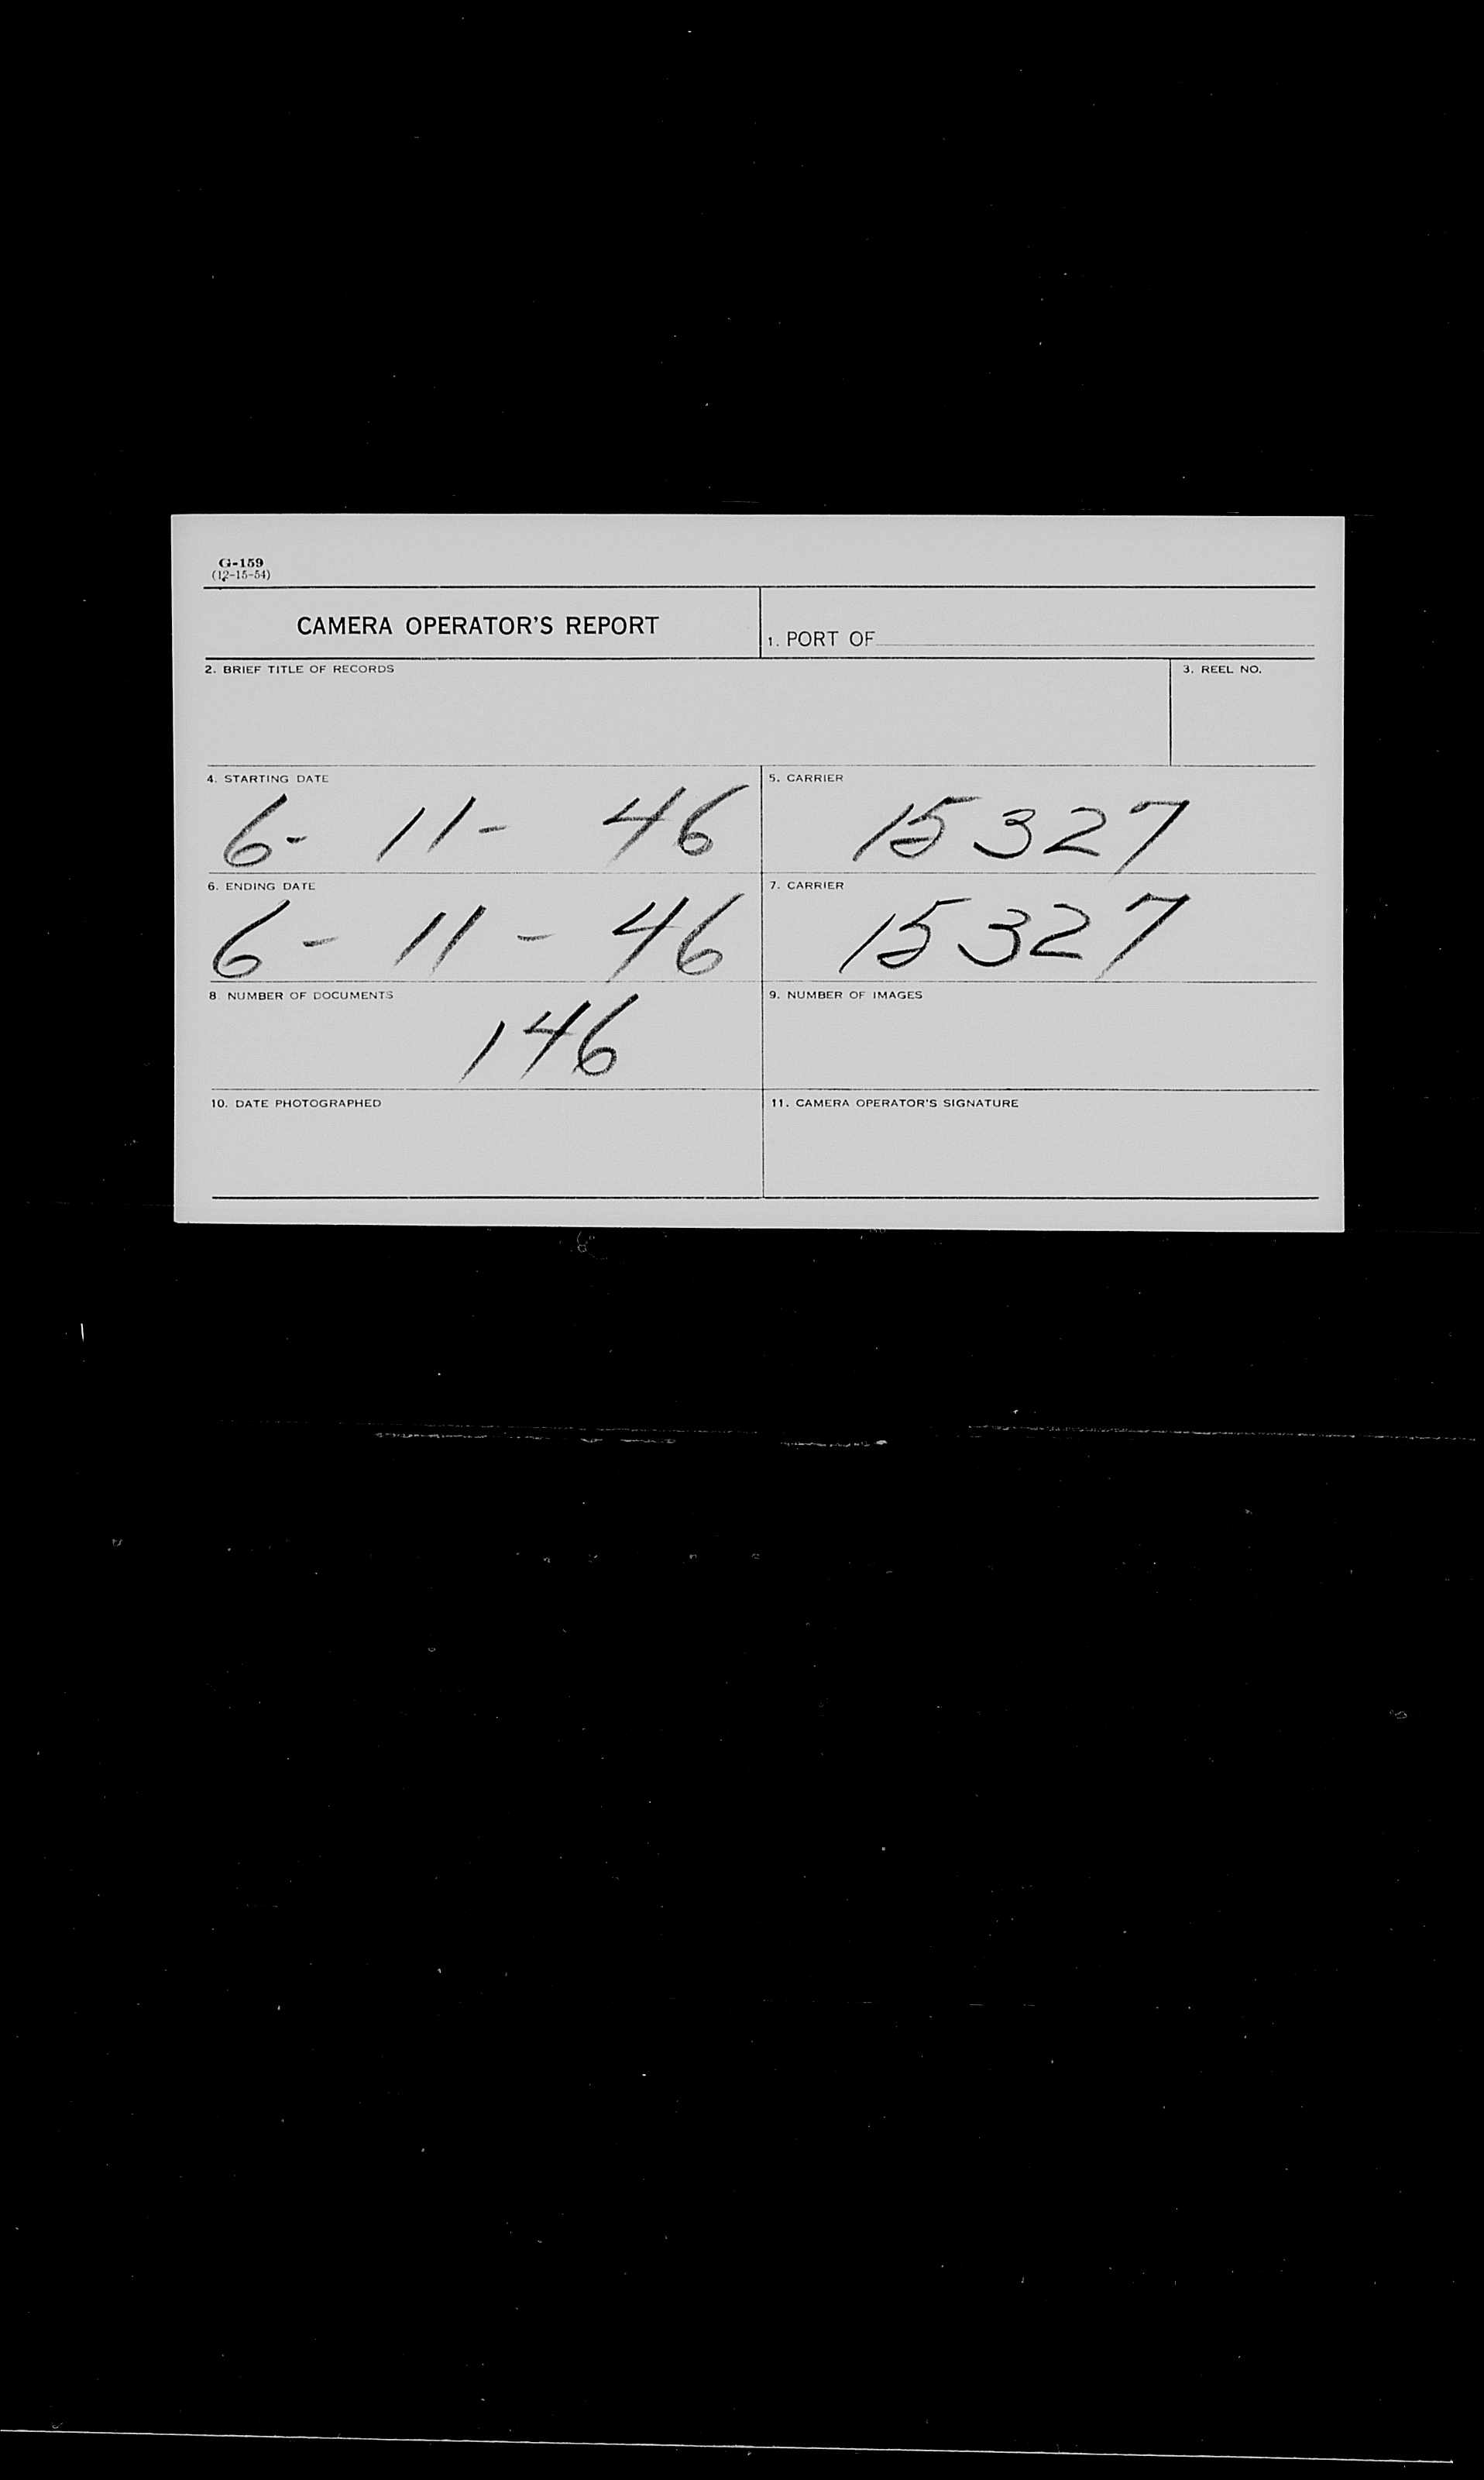 G-159
(12-15-54)
CAMERA OPERATOR'S REPORT
1. PORT OF
2. BRIEF TITLE OF RECORDS
3. REEL NO.
4. STARTING DATE
6- 11- 46
5. CARRIER
15327
6. ENDING DATE
6- 11- 46
7. CARRIER
15327
8. NUMBER OF DOCUMENTS
146
9. NUMBER OF IMAGES
10. DATE PHOTOGRAPHED
11. CAMERA OPERATOR'S SIGNATURE